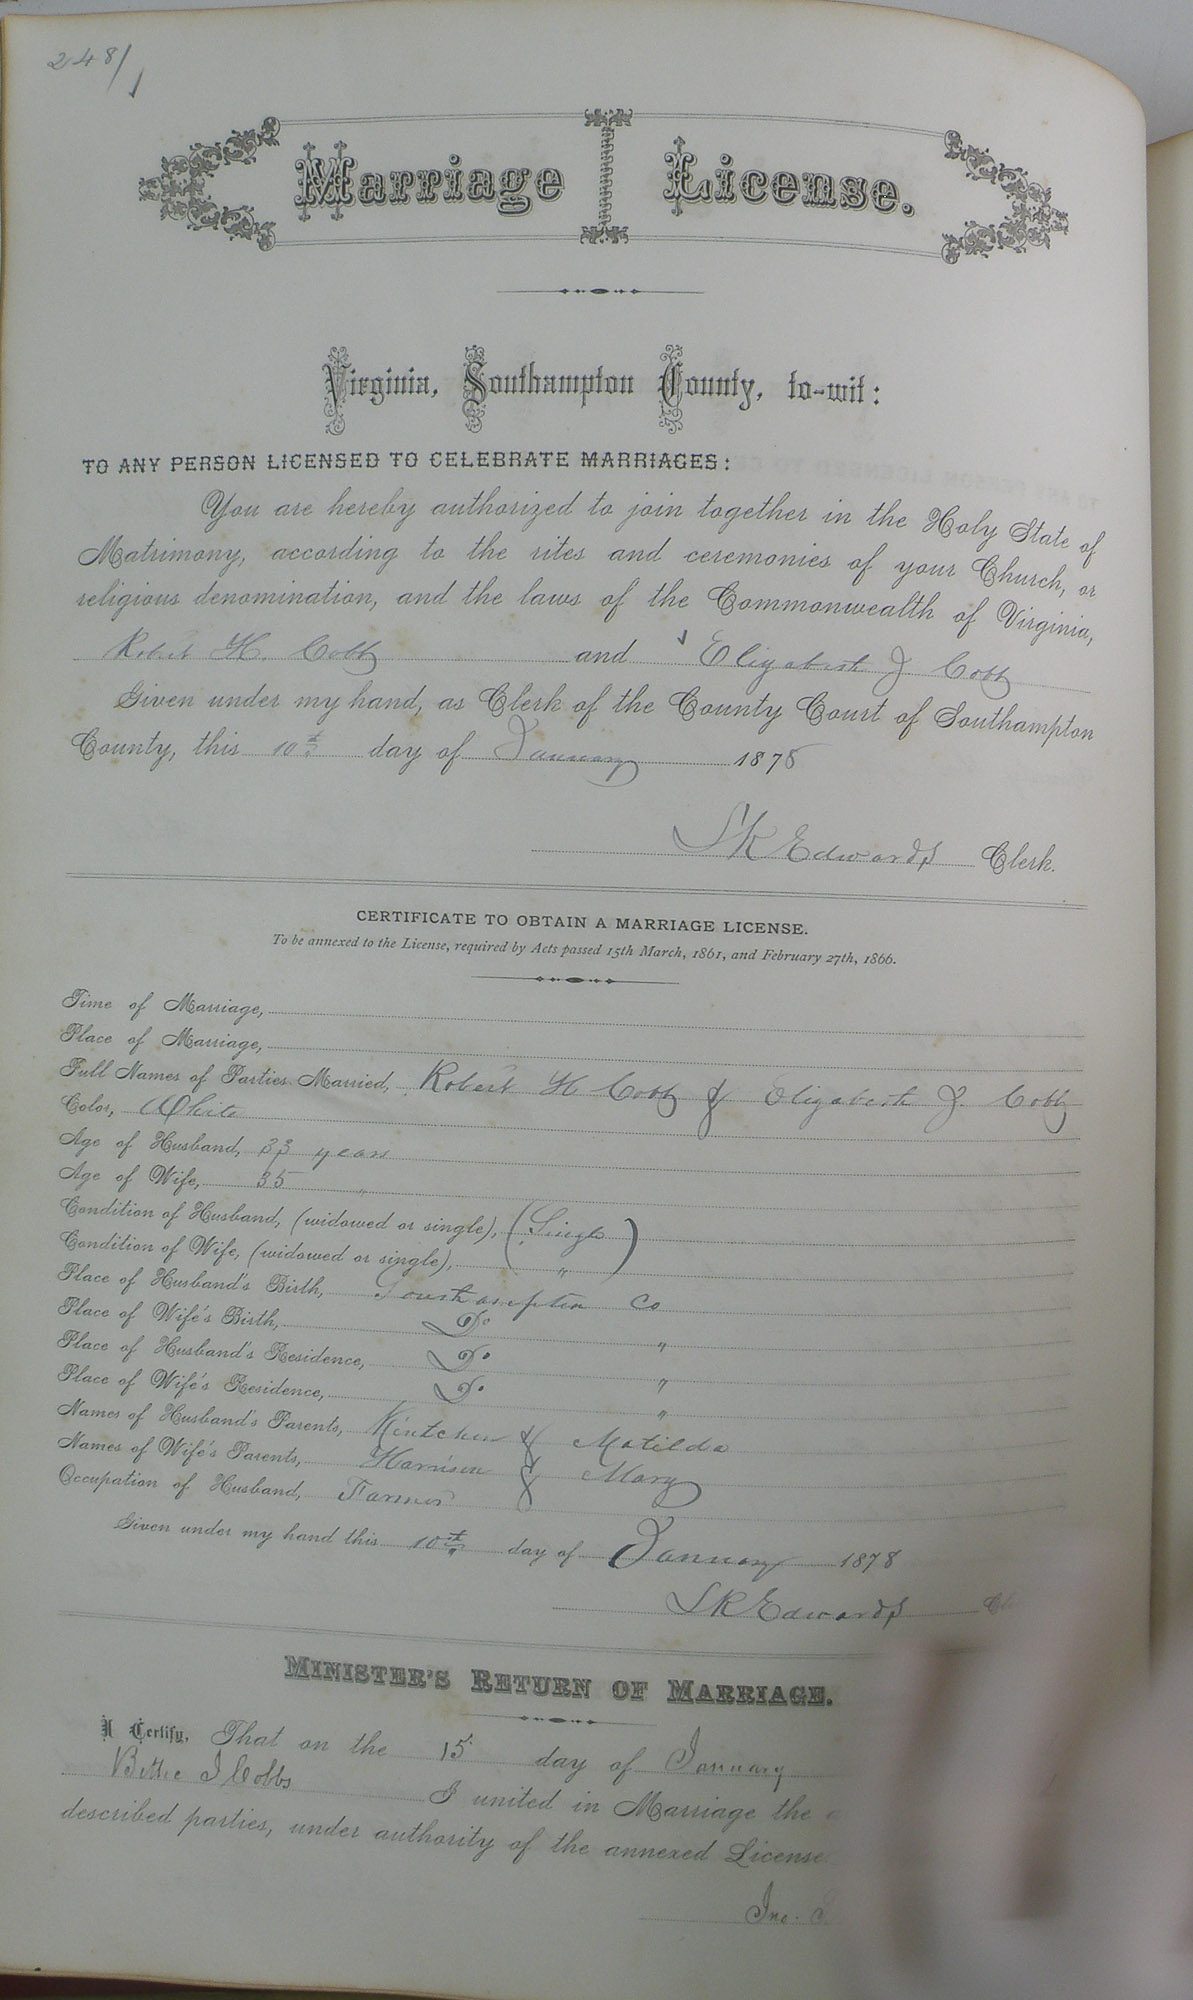 248/
Marriage License.
Virginia, Southampton County, to-wit:
TO ANY PERSON LICENSED TO CELEBRATE MARRIAGES:
You are hereby authorized to join together in the Holy State of
Matrimony, according to the rites and ceremonies of your Church, or
religious denomination, and the laws of the Commonwealth of Virginia,
Robert H. Cobb and Elizabeth J Cobb
Given under my hand, as Clerk of the County Court of Southampton
County, this 10th day of January 1878
L R Edwards Clerk.
CERTIFICATE TO OBTAIN A MARRIAGE LICENSE.
To be annexed to the License, required by Acts passed 15th March, 1861, and February 27th, 1866.
Time of Marriage,
Place of Marriage,
Full Names of Parties Married, Robert H Cobb & Elizabeth J. Cobb
Color, White
Age of Husband, 33 years
Age of Wife, 35 "
Condition of Husband, (widowed or single), (Single)
Condition of Wife, (widowed or single), "
Place of Husband's Birth, Southampton Co
Place of Wife's Birth, Do "
Place of Husband's Residence, Do "
Place of Wife's Residence, Do "
Names of Husband's Parents, Kintchen & Matilda
Names of Wife's Parents, Harrison & Mary
Occupation of Husband, Farmer
Given under my hand this 10th day of January 1878
L R Edwards
MINISTER'S RETURN OF MARRIAGE.
I Certify, That on the 15 day of January
Bettie J Cobbs I united in Marriage the
described parties, under authority of the annexed License.
Jno.